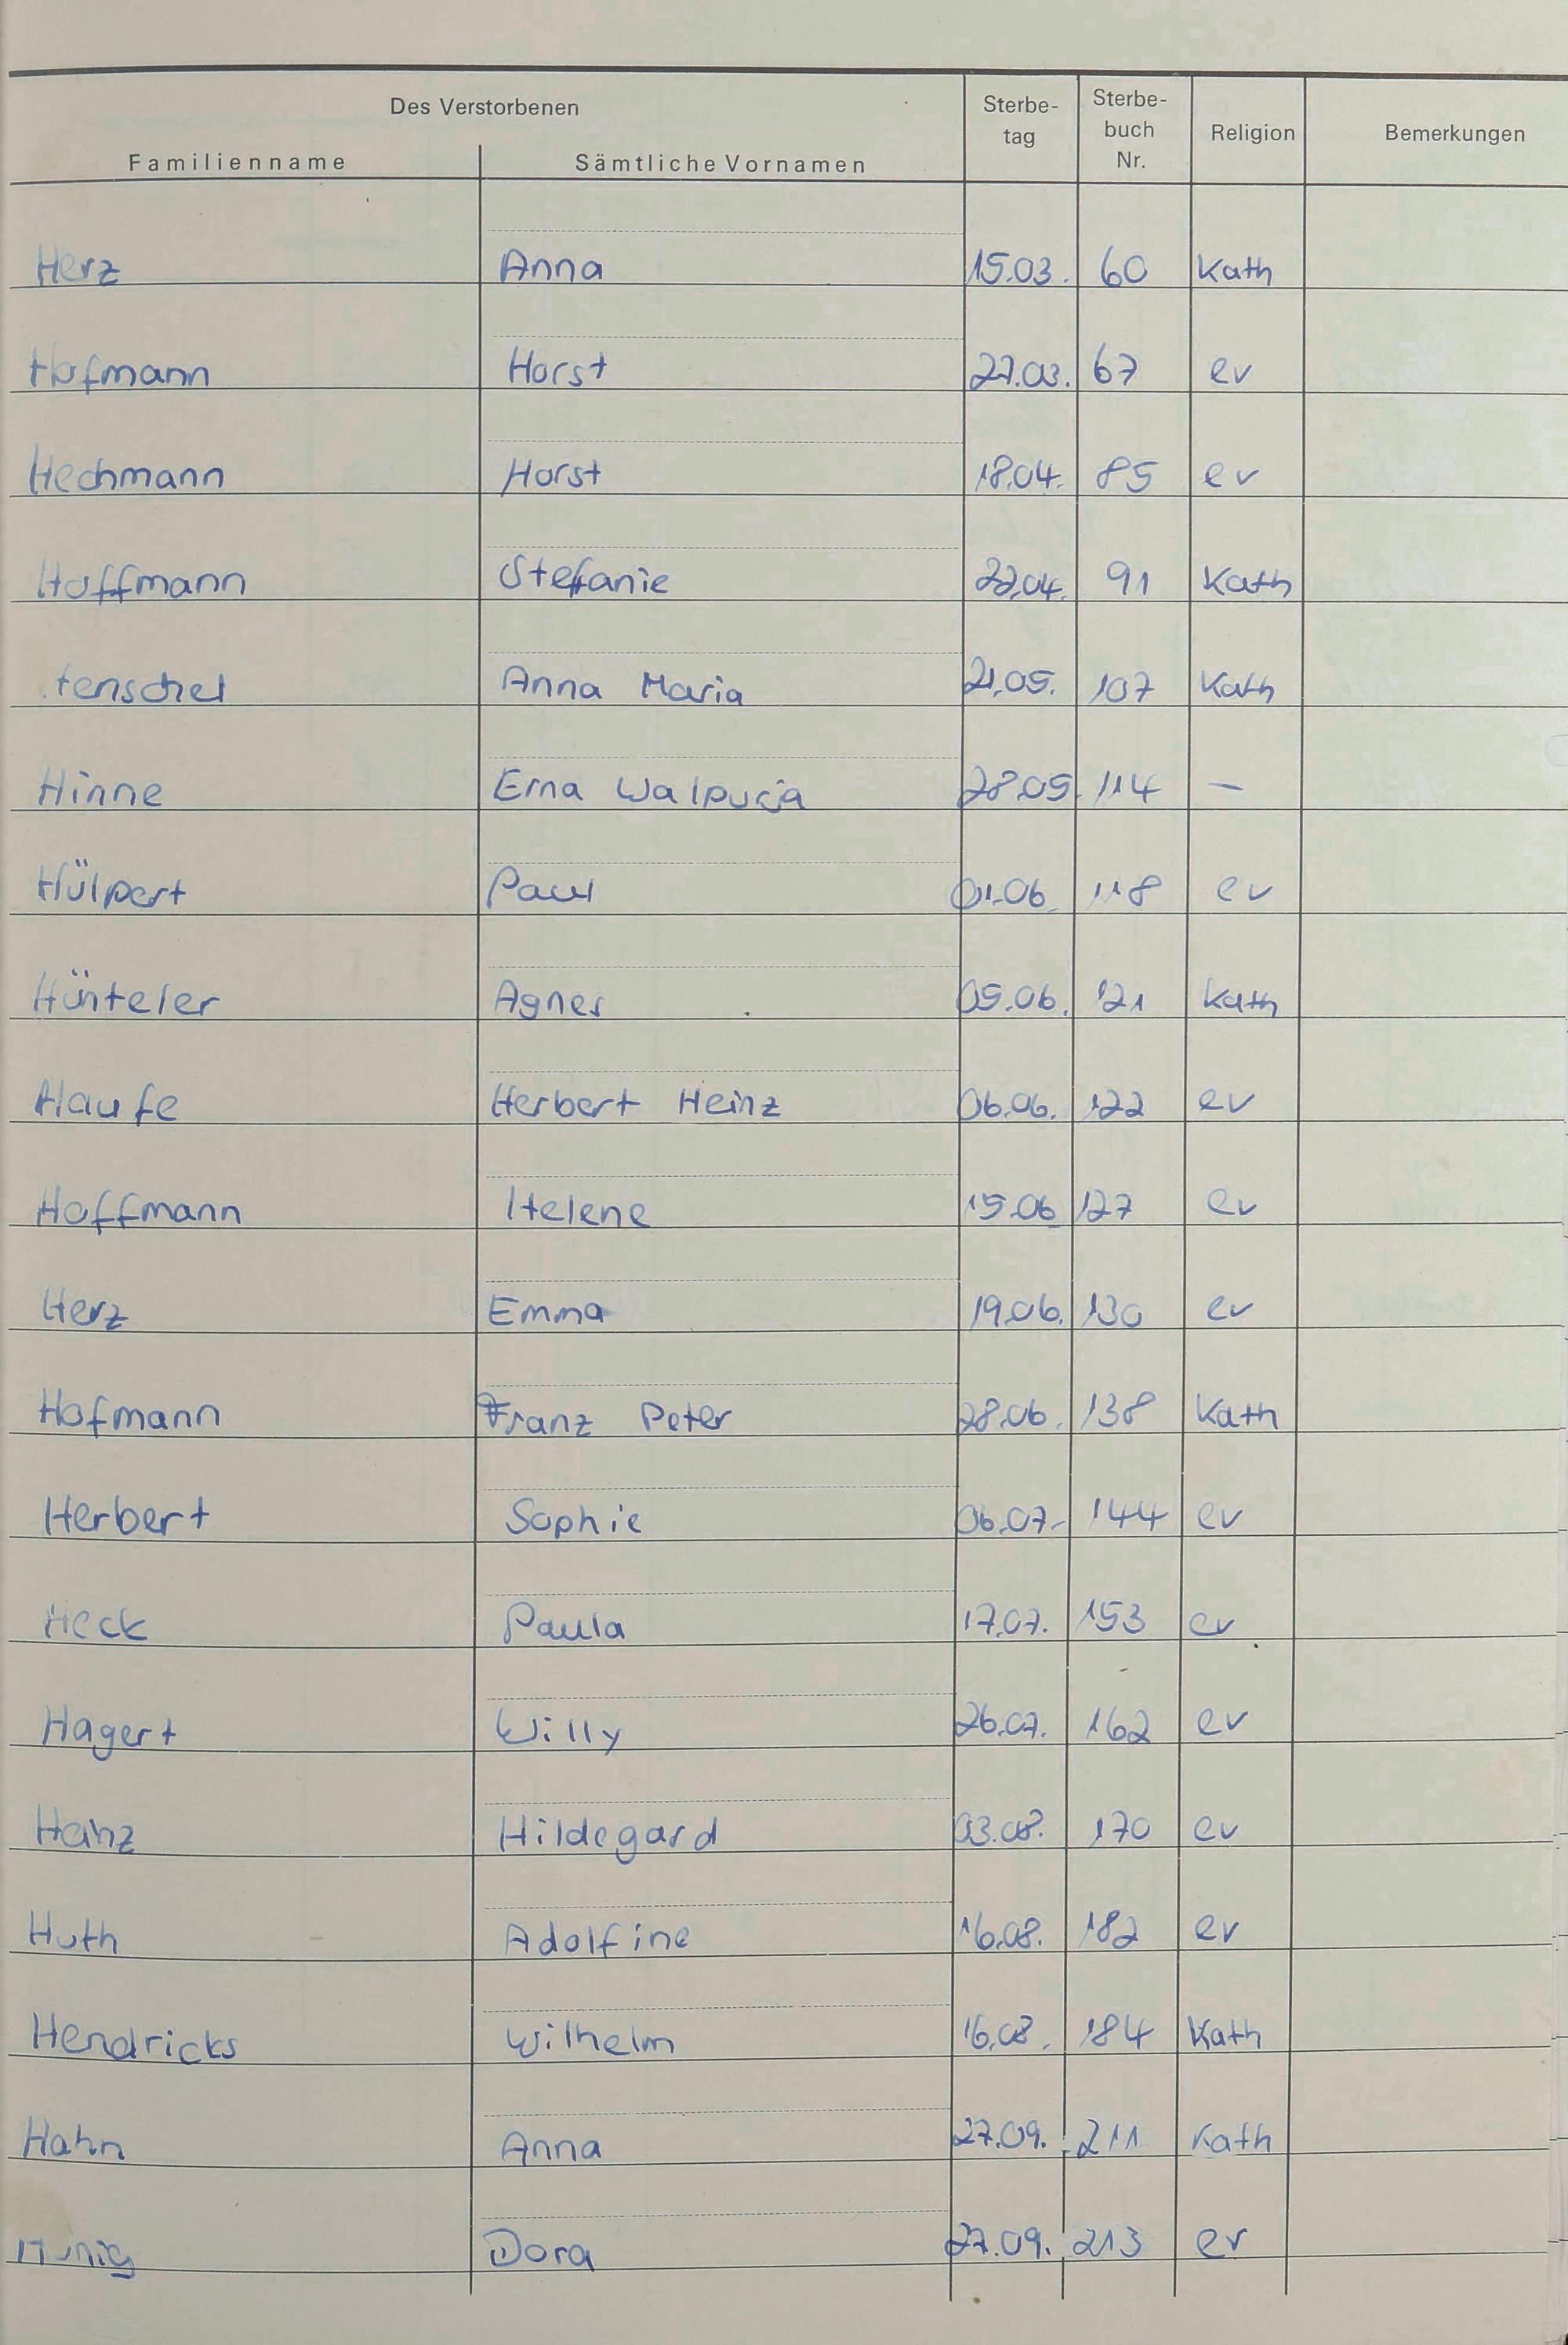 Des Verstorbenen
Familienname Sämtliche Vornamen Sterbe-tag Sterbe-buch Nr. Religion Bemerkungen
Herz Anna 15.03. 60 Kath
Hofmann Horst 27.03. 67 ev
Hechmann Horst 18.04. 85 ev
Hoffmann Stefanie 22.04. 91 Kath
Henschel Anna Maria 21.05. 107 Kath
Hinne Erna Walpurja 28.05. 114 —
Hülpert Paul 01.06. 118 ev
Hünteler Agnes 05.06. 121 Kath
Haufe Herbert Heinz 06.06. 122 ev
Hoffmann Helene 15.06 127 ev
Herz Emma 19.06. 130 ev
Hofmann Franz Peter 28.06. 138 Kath
Herbert Sophie 06.07. 144 ev
Heck Paula 17.07. 153 ev
Hagert Willy 26.07. 162 ev
Heinz Hildegard 03.08. 170 ev
Huth Adolfine 16.08. 182 ev
Hendricks Wilhelm 16.08. 184 Kath
Hahn Anna 27.09. 211 Kath
Dora 27.09. 213 ev